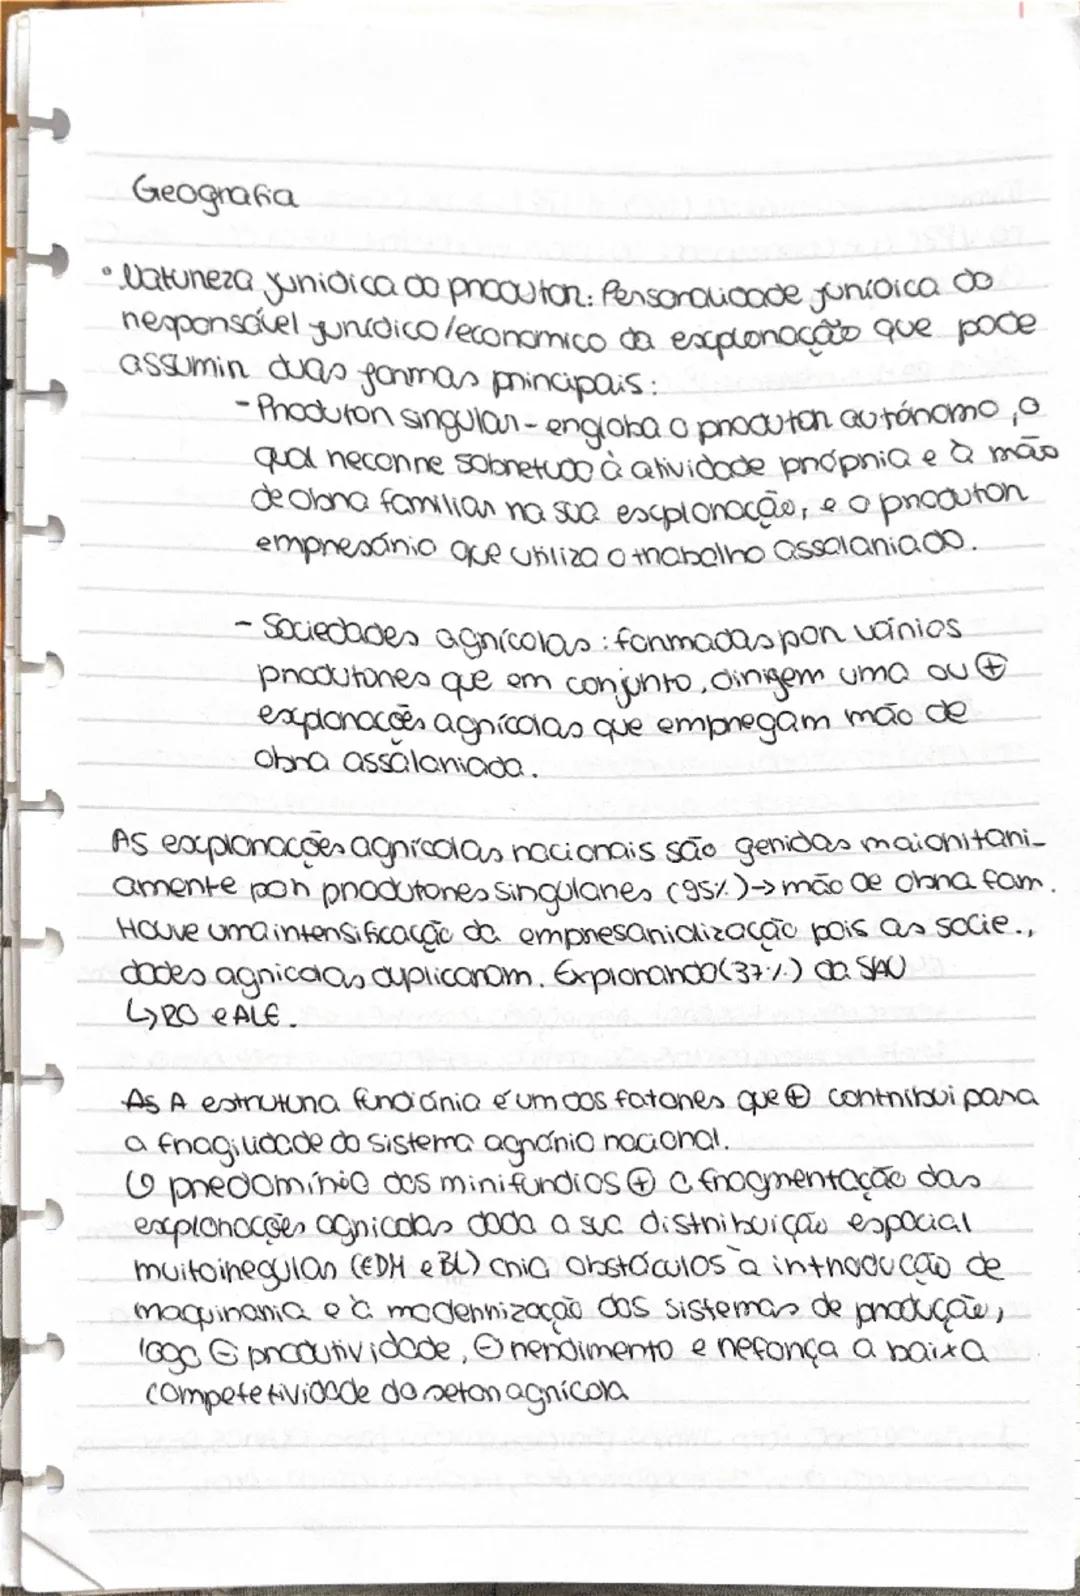 Geografia
• Natureza jurídica do produtor: Personalidade jurídica do
responsável jurídico/economico da exploração que pode
assumir duas formas principais:
- Produtor singular - engloba o produtor autónomo, o
qual recorre sobretudo à atividade própria e à mão
de obra familiar na sua exploração, e o produtor
empresário que utiliza o trabalho assalariado.
- Sociedades agrícolas: formadas por vários
produtores que em conjunto, dirigem uma ou ⊕
explorações agrícolas que empregam mão de
obra assalariada.
As explorações agrícolas nacionais são geridas maioritari-
amente por produtores singulares (95%) → mão de obra fam.
Houve uma intensificação da empresarialização pois as socie.,
dades agricolas duplicaram. Explorando (37%) da SAU
↳ RO e ALE.
As A estrutura fundiária é um dos fatores que ⊕ contribui para
a fragilidade do sistema agrário nacional.
O predomínio dos minifundios ⊕ a fragmentação das
explorações agricolas dada a sua distribuição espacial
muito iregular (EDM e BL) cria obstáculos à introdução de
maquinaria e à modernização dos sistemas de produção,
logo ⊖ produtividade, ⊖ rendimento e reforça a baixa
competetividade do setor agrícola